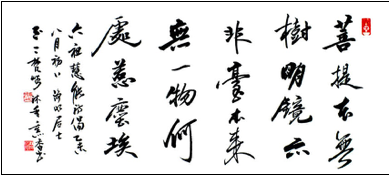 菩提本無
樹明鏡亦
非臺本来
無一物何
處惹塵埃
六祖慧能
八月初
居士